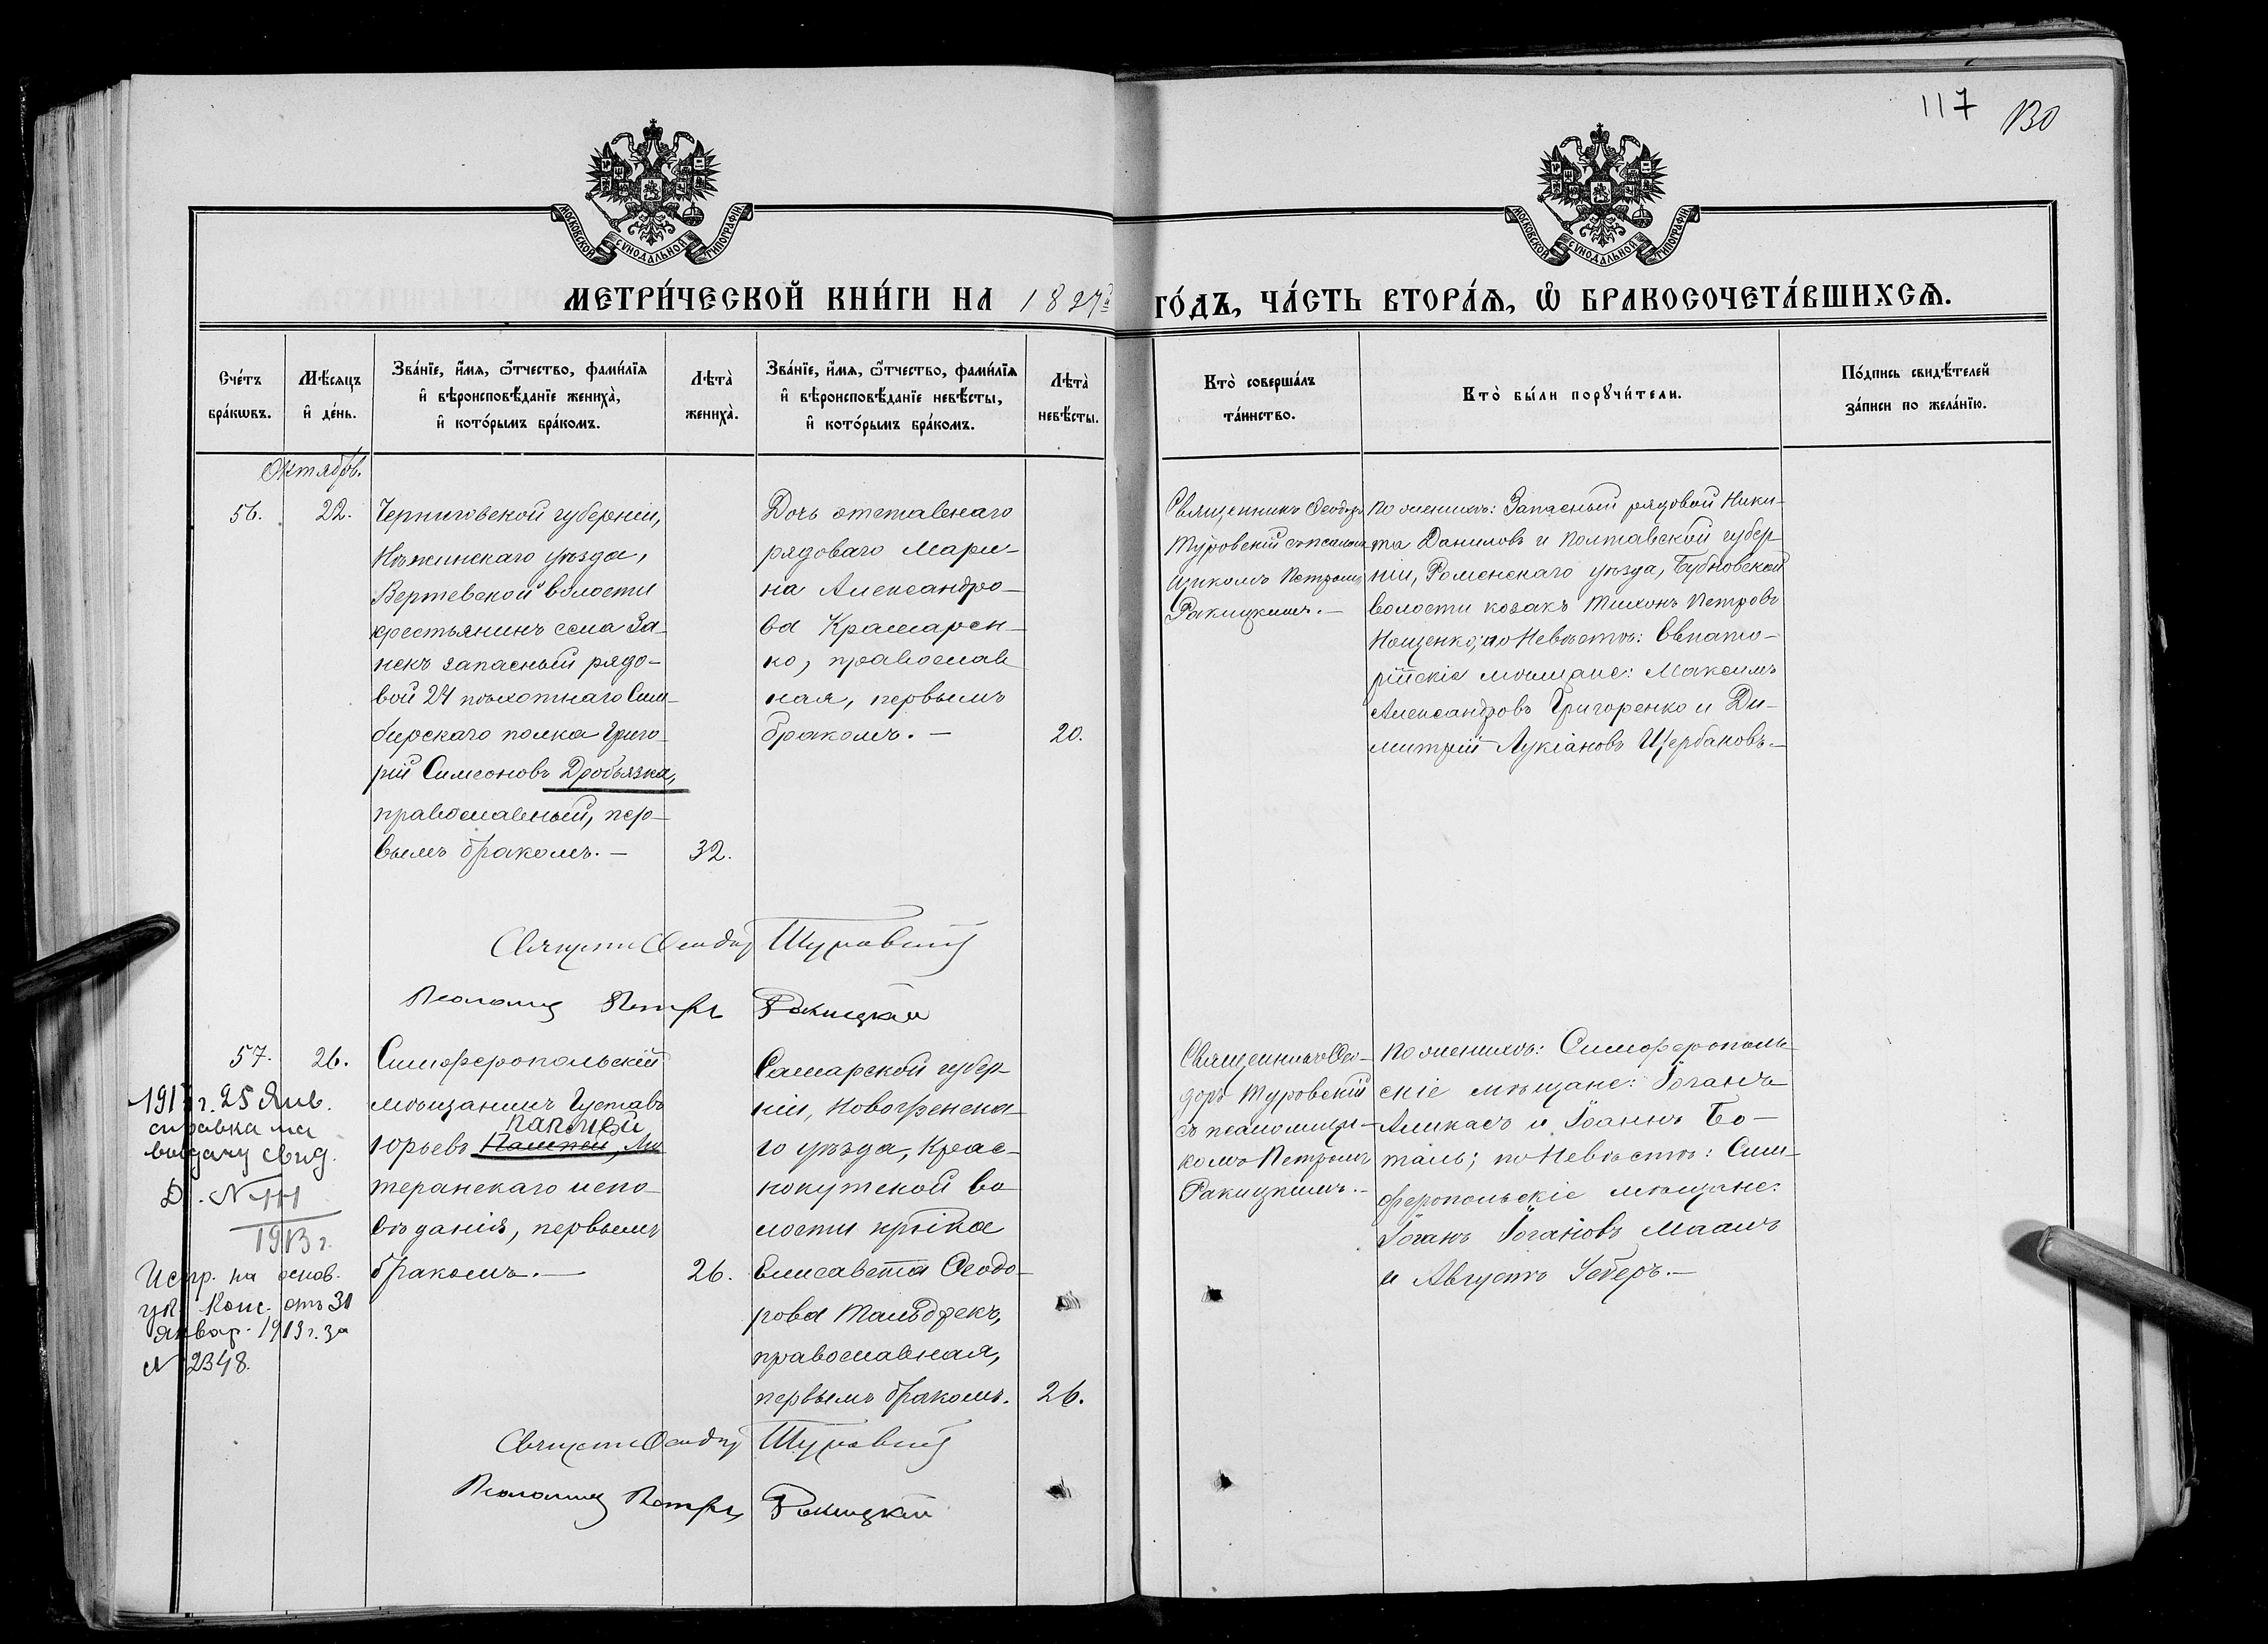 117
130
МОСКОВСКОЙ СѴНОДАЛЬНОЙ ТИПОГРАФІИ
МОСКОВСКОЙ СѴНОДАЛЬНОЙ ТИПОГРАФІИ
МЕТРИ́ЧЕСКОЙ КНИ́ГИ НА
ГО́ДЪ, ЧА́СТЬ ВТОРА́Я, Ѡ БРАКОСОЧЕТА́ВШИХСЯ.
Сче́тъ
бра́кѡвъ.
Мѣ́сяцъ
и҆ де́нь.
Зва́нїе, и҆́мя, ѻ҆́тчество, фами́лїя
и҆ вѣроисповѣ́данїе жениха̀,
и҆ кото́рымъ бра́комъ.
Лѣта̀
жениха̀.
Зва́нїе, и҆́мя, ѻ҆́тчество, фами́лїя
и҆ вѣроисповѣ́данїе невѣ́сты,
и҆ кото́рымъ бра́комъ.
Лѣта̀
невѣ́сты.
Кто̀ соверша́лъ
та́инство.
Кто̀ бы́ли порꙋчи́тели.
По́дпись свидѣ́телей
за́писи по жела́нїю.
Октябрь.
56.
22.
Черниговской губерніи,
Нѣжинскаго уѣзда,
Вертіевской волости
крестьянинъ села За-
некъ запасный рядо-
вой 24 пѣхотнаго Сим-
бирскаго полка Григо-
рій Симеоновъ Дробязка,
православный, пер-
вымъ бракомъ.—
32.
Дочь отставнаго
рядоваго Мари-
на Александро-
ва Крамарен-
ко, православ
ная, первымъ
бракомъ.—
20.
Священникъ Ѳеодоръ
Туровскій съ псалом
щикомъ Петромъ
Ракицкимъ.—
По женихѣ: Запасный рядовой Ники-
та Даниловъ и Полтавской губер
ніи, Роменскаго уѣзда, Бубновской
волости козакъ Тихонъ Петровъ
Нощенко; по Невѣстѣ: Евпато-
рійскіе мѣщане: Максимъ
Александровъ Григоренко и Ди-
митрій Лукіановъ Щербаковъ.—
Священ Ѳеодор Туровскій
Псаломщ Петръ Ракицкій
57.
26.
Симферопольскій
мѣщанинъ Густавъ
Юрьевъ Лю
теранскаго испо-
вѣданія, первымъ
бракомъ.—
26.
Самарской губер-
ніи, Новоузенска-
го уѣзда, Крас-
нокутской во
лости
Елисавета Ѳеодо-
рова
православная,
первымъ бракомъ.
26.
Священникъ Ѳео-
доръ Туровскій
съ псаломщи-
комъ Петромъ
Ракицкимъ.—
По женихѣ: Симферополь-
скіе мѣщане: Іоганъ
и Іоаннъ Бо-
таль; по Невѣстѣ: Сим-
феропольскіе мѣщане:
Іоганъ Іогановъ Маамъ
и Августъ Уеберъ.—
1913 г. 25 Янв.
справка на
выдачу свид.
1913 г.
Испр. на основ.
ук. Конс. отъ 31
январ. 1913 г. за
№ 2348.
Священ Ѳеодор Туровскій
Псаломщ Петръ Ракицкій